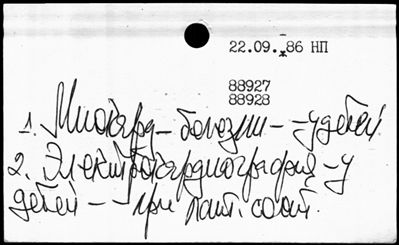 22.09.86 НП
88927
88928
1. Миокард - болезни - - у детей
2. Электрокардиография - у
детей - - при пат. сост.